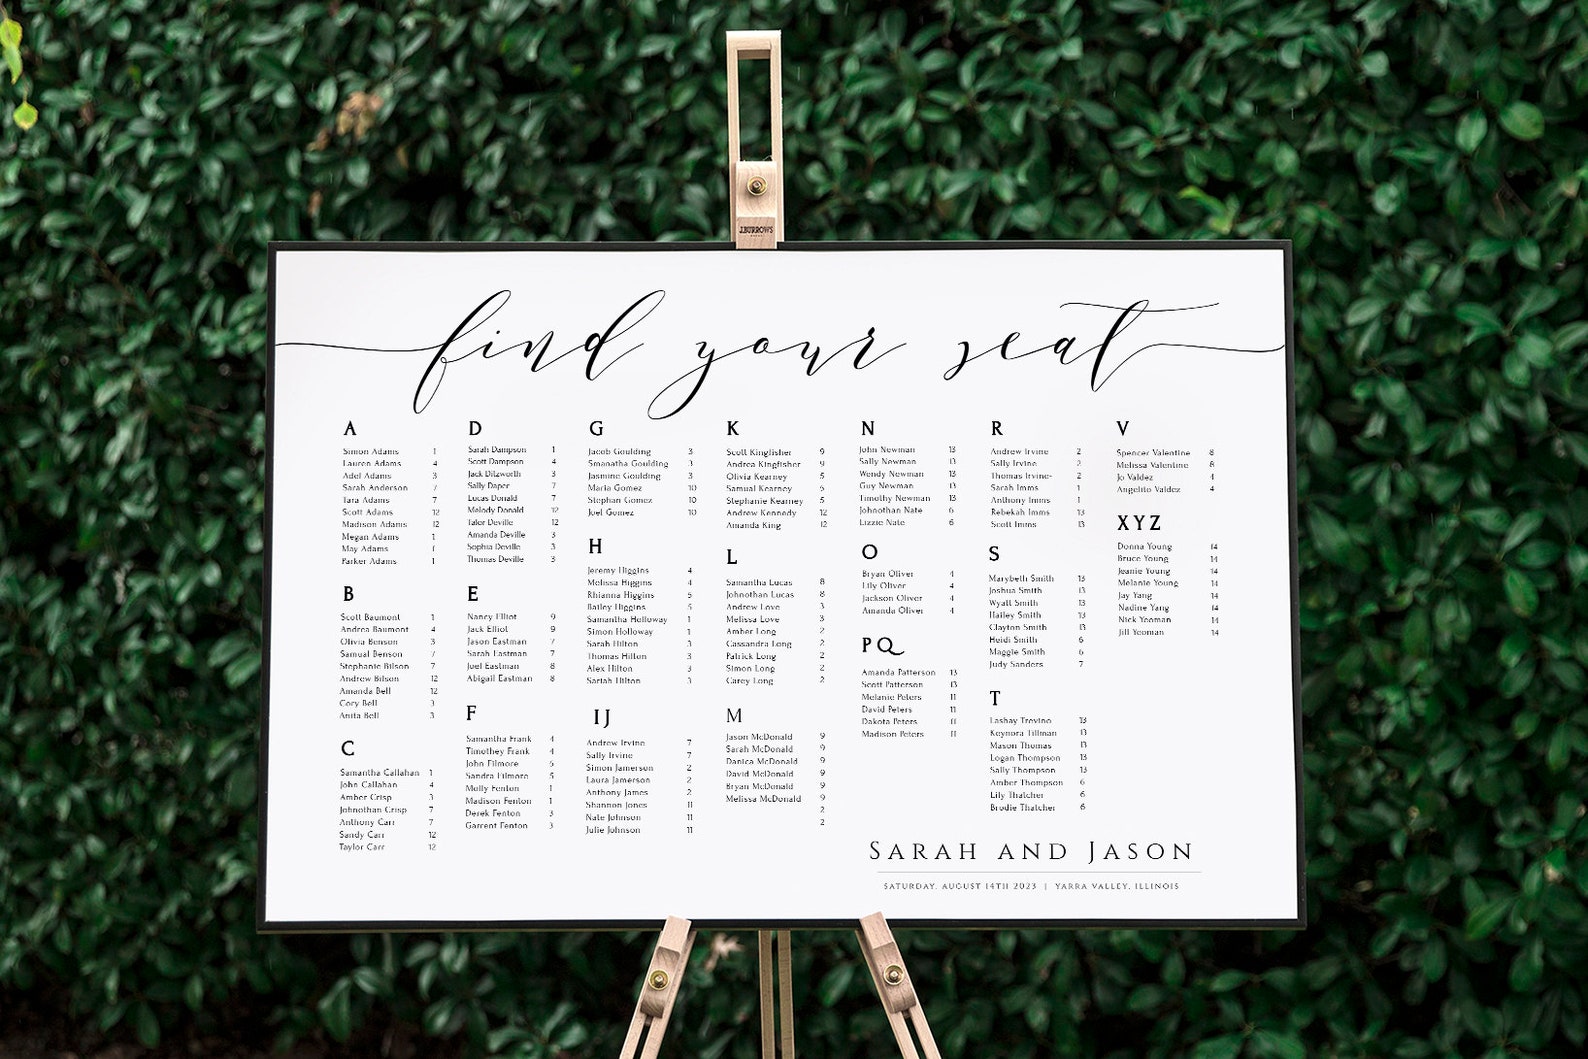 J.BURROWS
find your seat
A
Simon Adams 1
Lauren Adams 4
Adel Adams 3
Sarah Anderson 7
Tara Adams 7
Scott Adams 12
Madison Adams 12
Megan Adams 1
May Adams 1
Parker Adams 1
B
Scott Baumont 1
Andrea Baumont 4
Olivia Benson 3
Samual Benson 7
Stephanie Bilson 7
Andrew Bilson 12
Amanda Bell 12
Cory Bell 3
Anita Bell 3
C
Samantha Callahan 1
John Callahan 4
Amber Crisp 3
Johnothan Crisp 7
Anthony Carr 7
Sandy Carr 12
Taylor Carr 12
D
Sarah Dampson 1
Scott Dampson 4
Jack Dilzworth 3
Sally Daper 7
Lucas Donald 7
Melody Donald 12
Talor Deville 12
Amanda Deville 3
Sophia Deville 3
Thomas Deville 3
E
Nancy Elliot 9
Jack Elliot 9
Jason Eastman 7
Sarah Eastman 7
Joel Eastman 8
Abigail Eastman 8
F
Samantha Frank 4
Timothey Frank 4
John Filmore 5
Sandra Filmore 5
Molly Fenton 1
Madison Fenton 1
Derek Fenton 3
Garrent Fenton 3
G
Jacob Goulding 3
Smanatha Goulding 3
Jasmine Goulding 3
Maria Gomez 10
Stephan Gomez 10
Joel Gomez 10
H
Jeremy Higgins 4
Melissa Higgins 4
Rhianna Higgins 5
Bailey Higgins 5
Samantha Holloway 1
Simon Holloway 1
Sarah Hilton 3
Thomas Hilton 3
Alex Hilton 3
Sariah Hilton 3
IJ
Andrew Irvine 7
Sally Irvine 7
Simon Jamerson 2
Laura Jamerson 2
Anthony James 2
Shannon Jones 11
Nate Johnson 11
Julie Johnson 11
K
Scott Kingfisher 9
Andrea Kingfisher 9
Olivia Kearney 5
Samual Kearney 5
Stephanie Kearney 5
Andrew Kennedy 12
Amanda King 12
L
Samantha Lucas 8
Johnothan Lucas 8
Andrew Love 3
Melissa Love 3
Amber Long 2
Cassandra Long 2
Patrick Long 2
Simon Long 2
Carey Long 2
M
Jason McDonald 9
Sarah McDonald 9
Danica McDonald 9
David McDonald 9
Bryan McDonald 9
Melissa McDonald 9
2
2
N
John Newman 13
Sally Newman 13
Wendy Newman 13
Guy Newman 13
Timothy Newman 13
Johnothan Nate 6
Lizzie Nate 6
O
Bryan Oliver 4
Lily Oliver 4
Jackson Oliver 4
Amanda Oliver 4
PQ
Amanda Patterson 13
Scott Patterson 13
Melanie Peters 11
David Peters 11
Dakota Peters 11
Madison Peters 11
R
Andrew Irvine 2
Sally Irvine 2
Thomas Irvine- 2
Sarah Imms 1
Anthony Imms 1
Rebekah Imms 13
Scott Imms 13
S
Marybeth Smith 13
Joshua Smith 13
Wyatt Smith 13
Hailey Smith 13
Clayton Smith 13
Heidi Smith 6
Maggie Smith 6
Judy Sanders 7
T
Lashay Trevino 13
Keynora Tillman 13
Mason Thomas 13
Logan Thompson 13
Sally Thompson 13
Amber Thompson 6
Lily Thatcher 6
Brodie Thatcher 6
V
Spencer Valentine 8
Melissa Valentine 8
Jo Valdez 4
Angelito Valdez 4
XYZ
Donna Young 14
Bruce Young 14
Jeanie Young 14
Melanie Young 14
Jay Yang 14
Nadine Yang 14
Nick Yeoman 14
Jill Yeoman 14
SARAH AND JASON
SATURDAY, AUGUST 14TH 2023 | YARRA VALLEY, ILLINOIS